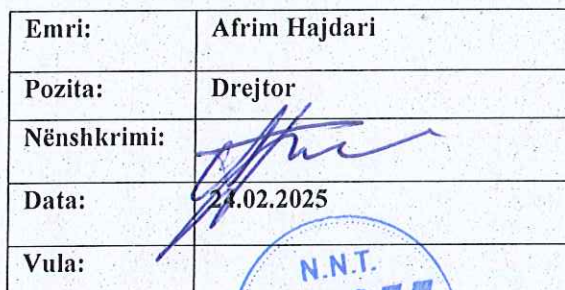 Emri: Afrim Hajdari
Pozita: Drejtor
Nënshkrimi:
Data: 24.02.2025
Vula: N.N.T.